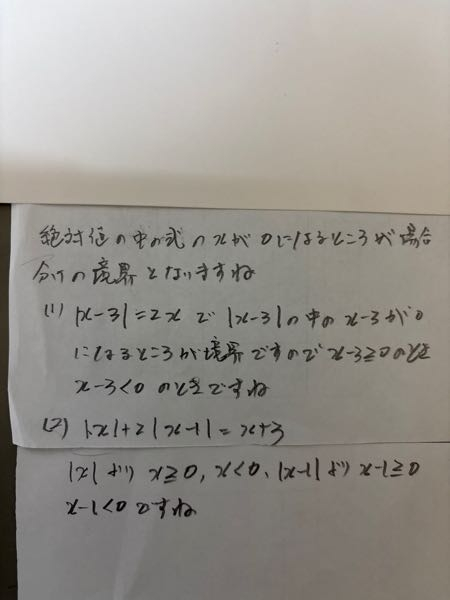 絶対値の中の式のxが0になるところが場合
分けの境界となりますね
(1) |x-3|=2x で |x-3|の中のx-3が0
になるところが境界ですのでx-3≧0のとき
x-3<0 のときですね
(2) |x|+2|x-1|=x+3
|x|より x≧0, x<0、|x-1|より x-1≧0
x-1<0 ですね